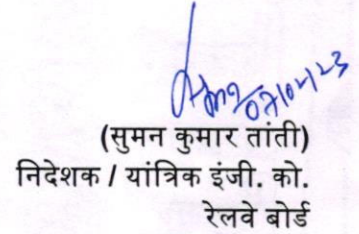 (सुमन कुमार तांती)
निदेशक / यांत्रिक इंजी. को.
रेलवे बोर्ड